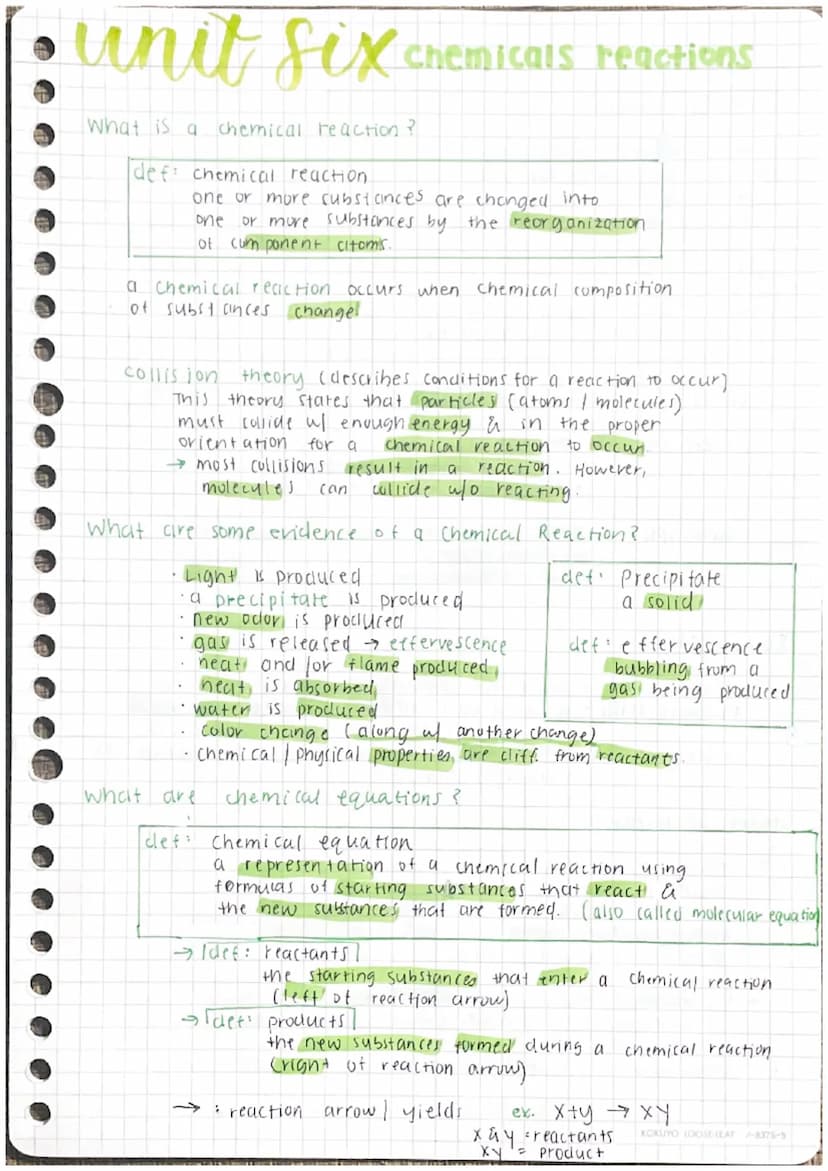 unit six chemicals reactions
What is a chemical reaction?
def: chemical reaction
one or more substances are changed into
one or more substances by the reorganization
of component atoms.
a chemical reaction occurs when chemical composition
of substances change!
collision theory (describes conditions for a reaction to occur)
This theory states that particles (atoms / molecules)
must collide w/ enough energy & in the proper
orientation for a chemical reaction to occur.
→ most collisions result in a reaction. However,
molecules can collide w/o reacting.
What are some evidence of a Chemical Reaction?
· Light is produced
· a precipitate is produced
· new odor is produced
· gas is released → effervescence
· heat and/or flame produced
· heat is absorbed
· water is produced
· color change (along w/ another change)
· chemical / physical properties are diff. from reactants.
def: Precipitate
a solid
def: effervescence
bubbling from a
gas being produced
What are chemical equations?
def: chemical equation
a representation of a chemical reaction using
formulas of starting substances that react &
the new substances that are formed. (also called molecular equation)
→ def: reactants
the starting substances that enter a chemical reaction
(left of reaction arrow)
→ def: products
the new substances formed during a chemical reaction
(right of reaction arrow)
→ : reaction arrow / yields ex. X+y → XY
X & y = reactants
xy = product
KOKUYO LOOSE-LEAF ノ-837S-5